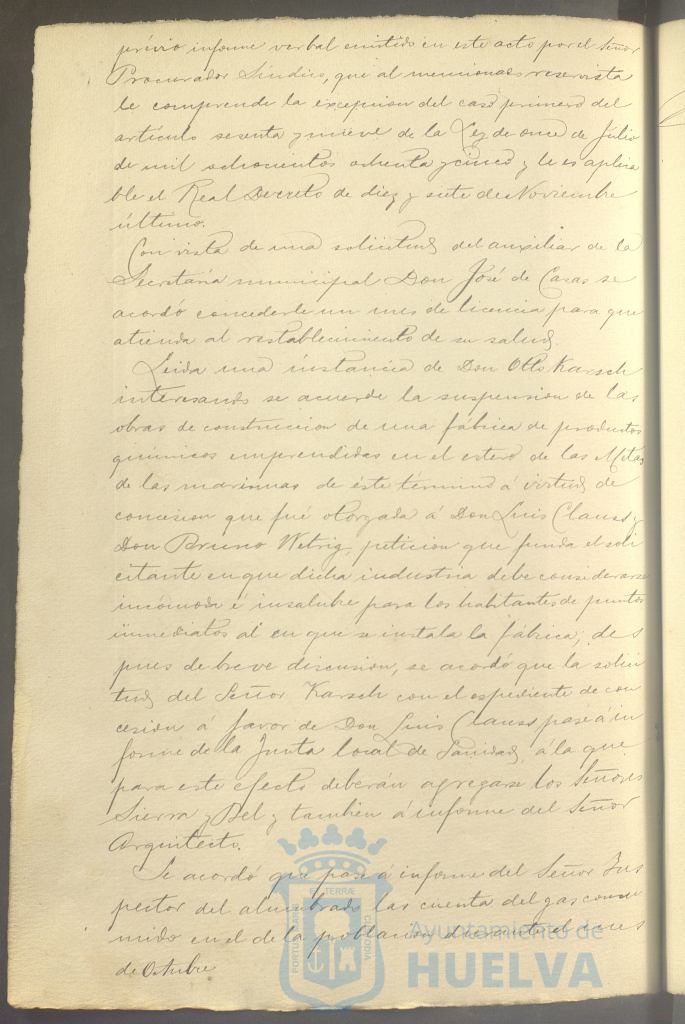 prévio informe verbal emitido en este acto por el Señor
Procurador Síndico, que al mencionado reservista
le comprende la excepcion del caso primero del
artículo sesenta y nueve de la Ley de once de Julio
de mil ochocientos ochenta y cinco y le es aplica
ble el Real Decreto de diez y siete de Noviembre
último.
Con vista de una solicitud del auxiliar de la
Secretaría municipal Don José de Casas se
acordó concederle un mes de licencia para que
atienda al restablecimiento de su salud.
Leida una instancia de Don Otto Karsch
interesando se acuerde la suspension de las
obras de construccion de una fábrica de productos
químicos emprendidas en el estero de las Metas
de las marismas de éste término á virtud de
concesion que fué otorgada á Don Luis Clauss y
Don Bruno Wetrig, peticion que funda el soli
citante en que dicha industria debe considerarse
incómoda é insalubre para los habitantes de puntos
inmediatos al en que se instala la fábrica; des
pues de breve discusion, se acordó que la solici
tud del Señor Karsch con el espediente de con
cesion á favor de Don Luis Clauss pase á in
forme de la Junta local de Sanidad, á la que
para este efecto deberán agregarse los Señores
Sierra y Bel y tambien á informe del Señor
Arquitecto.
Se acordó que pase á informe del Señor Ins
pector del alumbrado las cuenta del gas consu
mido en el de la poblacion durante el mes
de Octubre
PORTUS MARIS ET TERRÆ CUSTODIA
Ayuntamiento de
HUELVA